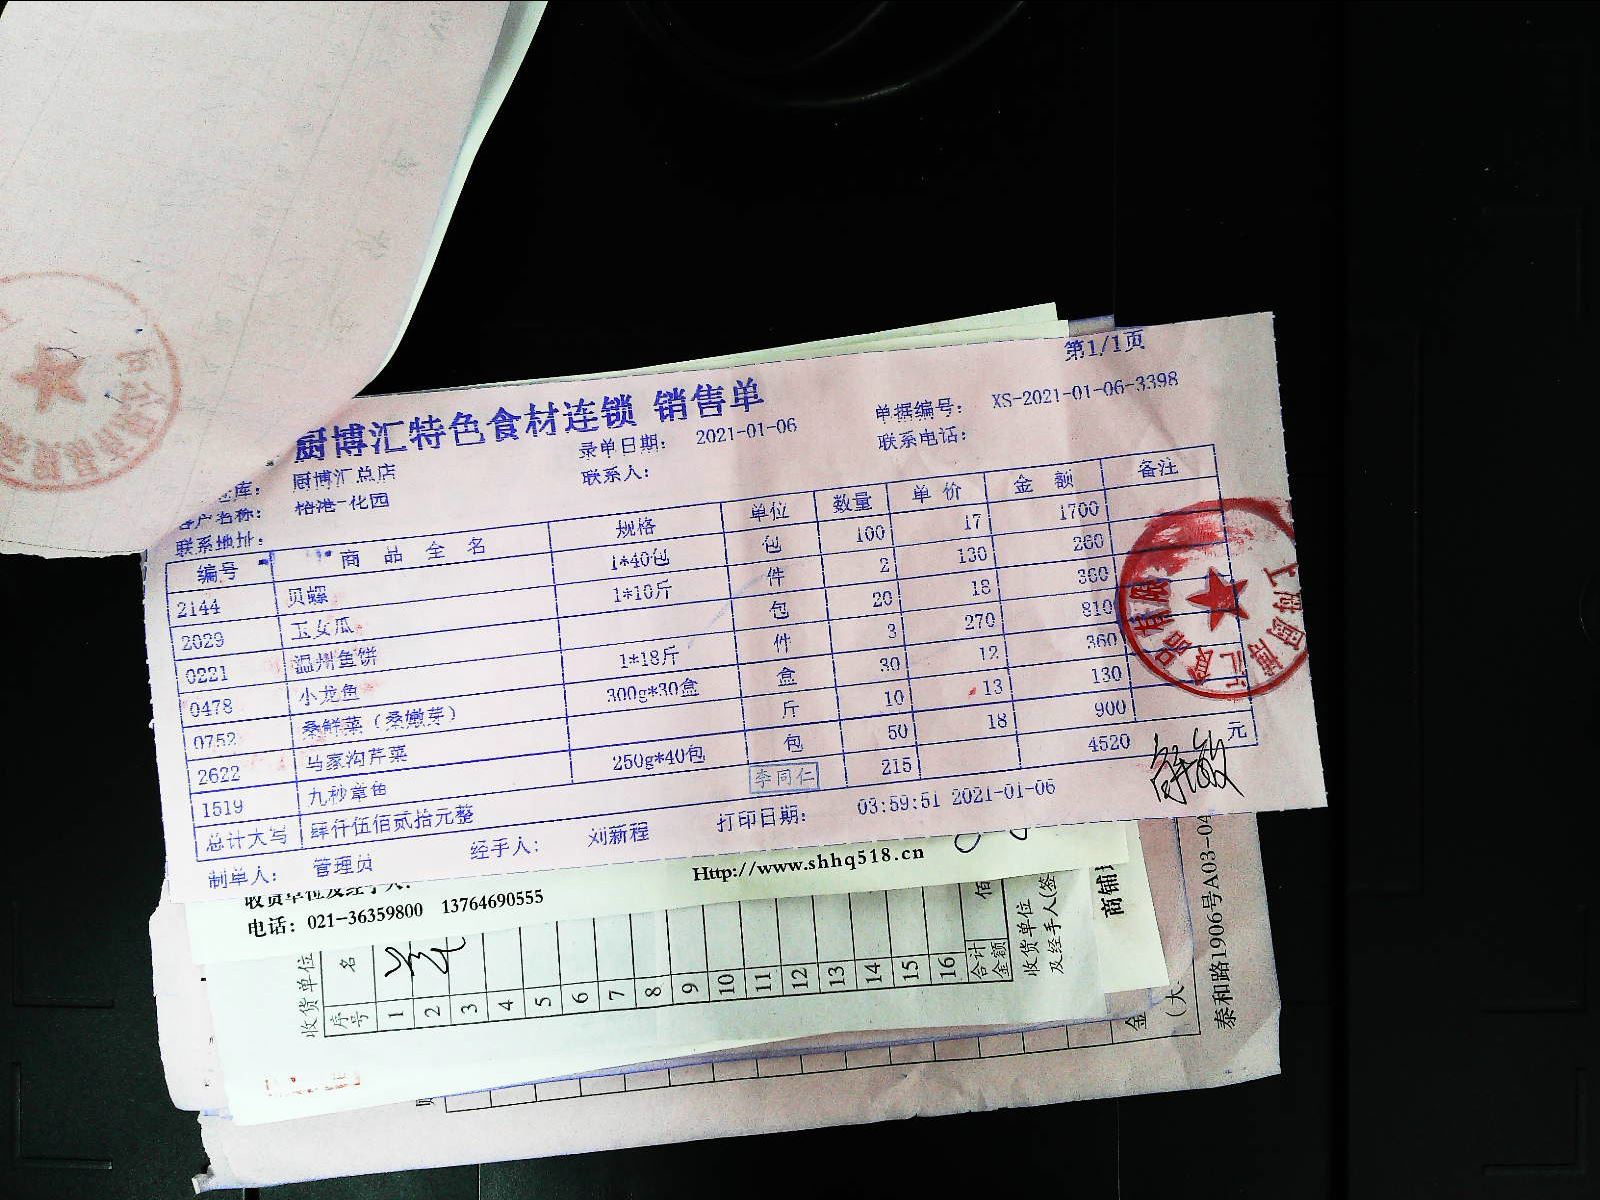 第1/1页
厨博汇特色食材连锁 销售单
录单日期： 2021-01-06 单据编号： XS-2021-01-06-3398
库： 厨博汇总店 联系人： 联系电话：
客户名称： 榕港-花园
联系地址：
编号 商品全名 规格 单位 数量 单价 金额 备注
2144 贝螺 1*40包 包 100 17 1700
2029 玉女瓜 1*10斤 件 2 130 260
0221 温州鱼饼 包 20 18 360
0478 小龙鱼 1*18斤 件 3 270 810
0752 桑鲜菜（桑嫩芽） 300g*30盒 盒 30 12 360
2622 马家沟芹菜 斤 10 13 130
1519 九秒章鱼 250g*40包 包 50 18 900
总计大写 肆仟伍佰贰拾元整 215 4520 元
李同仁
制单人： 管理员 经手人： 刘新程 打印日期： 03:59:51 2021-01-06
收货单位及经手人：
Http://www.shhq518.cn
电话：021-36359800 13764690555
收货单位
序号 名
1
2
3
4
5
6
7
8
9
10
11
12
13
14
15
16
合计金额 佰
收货单位及经手人(签
商铺
金
(大
泰和路1906号A03-04
上海厨博汇